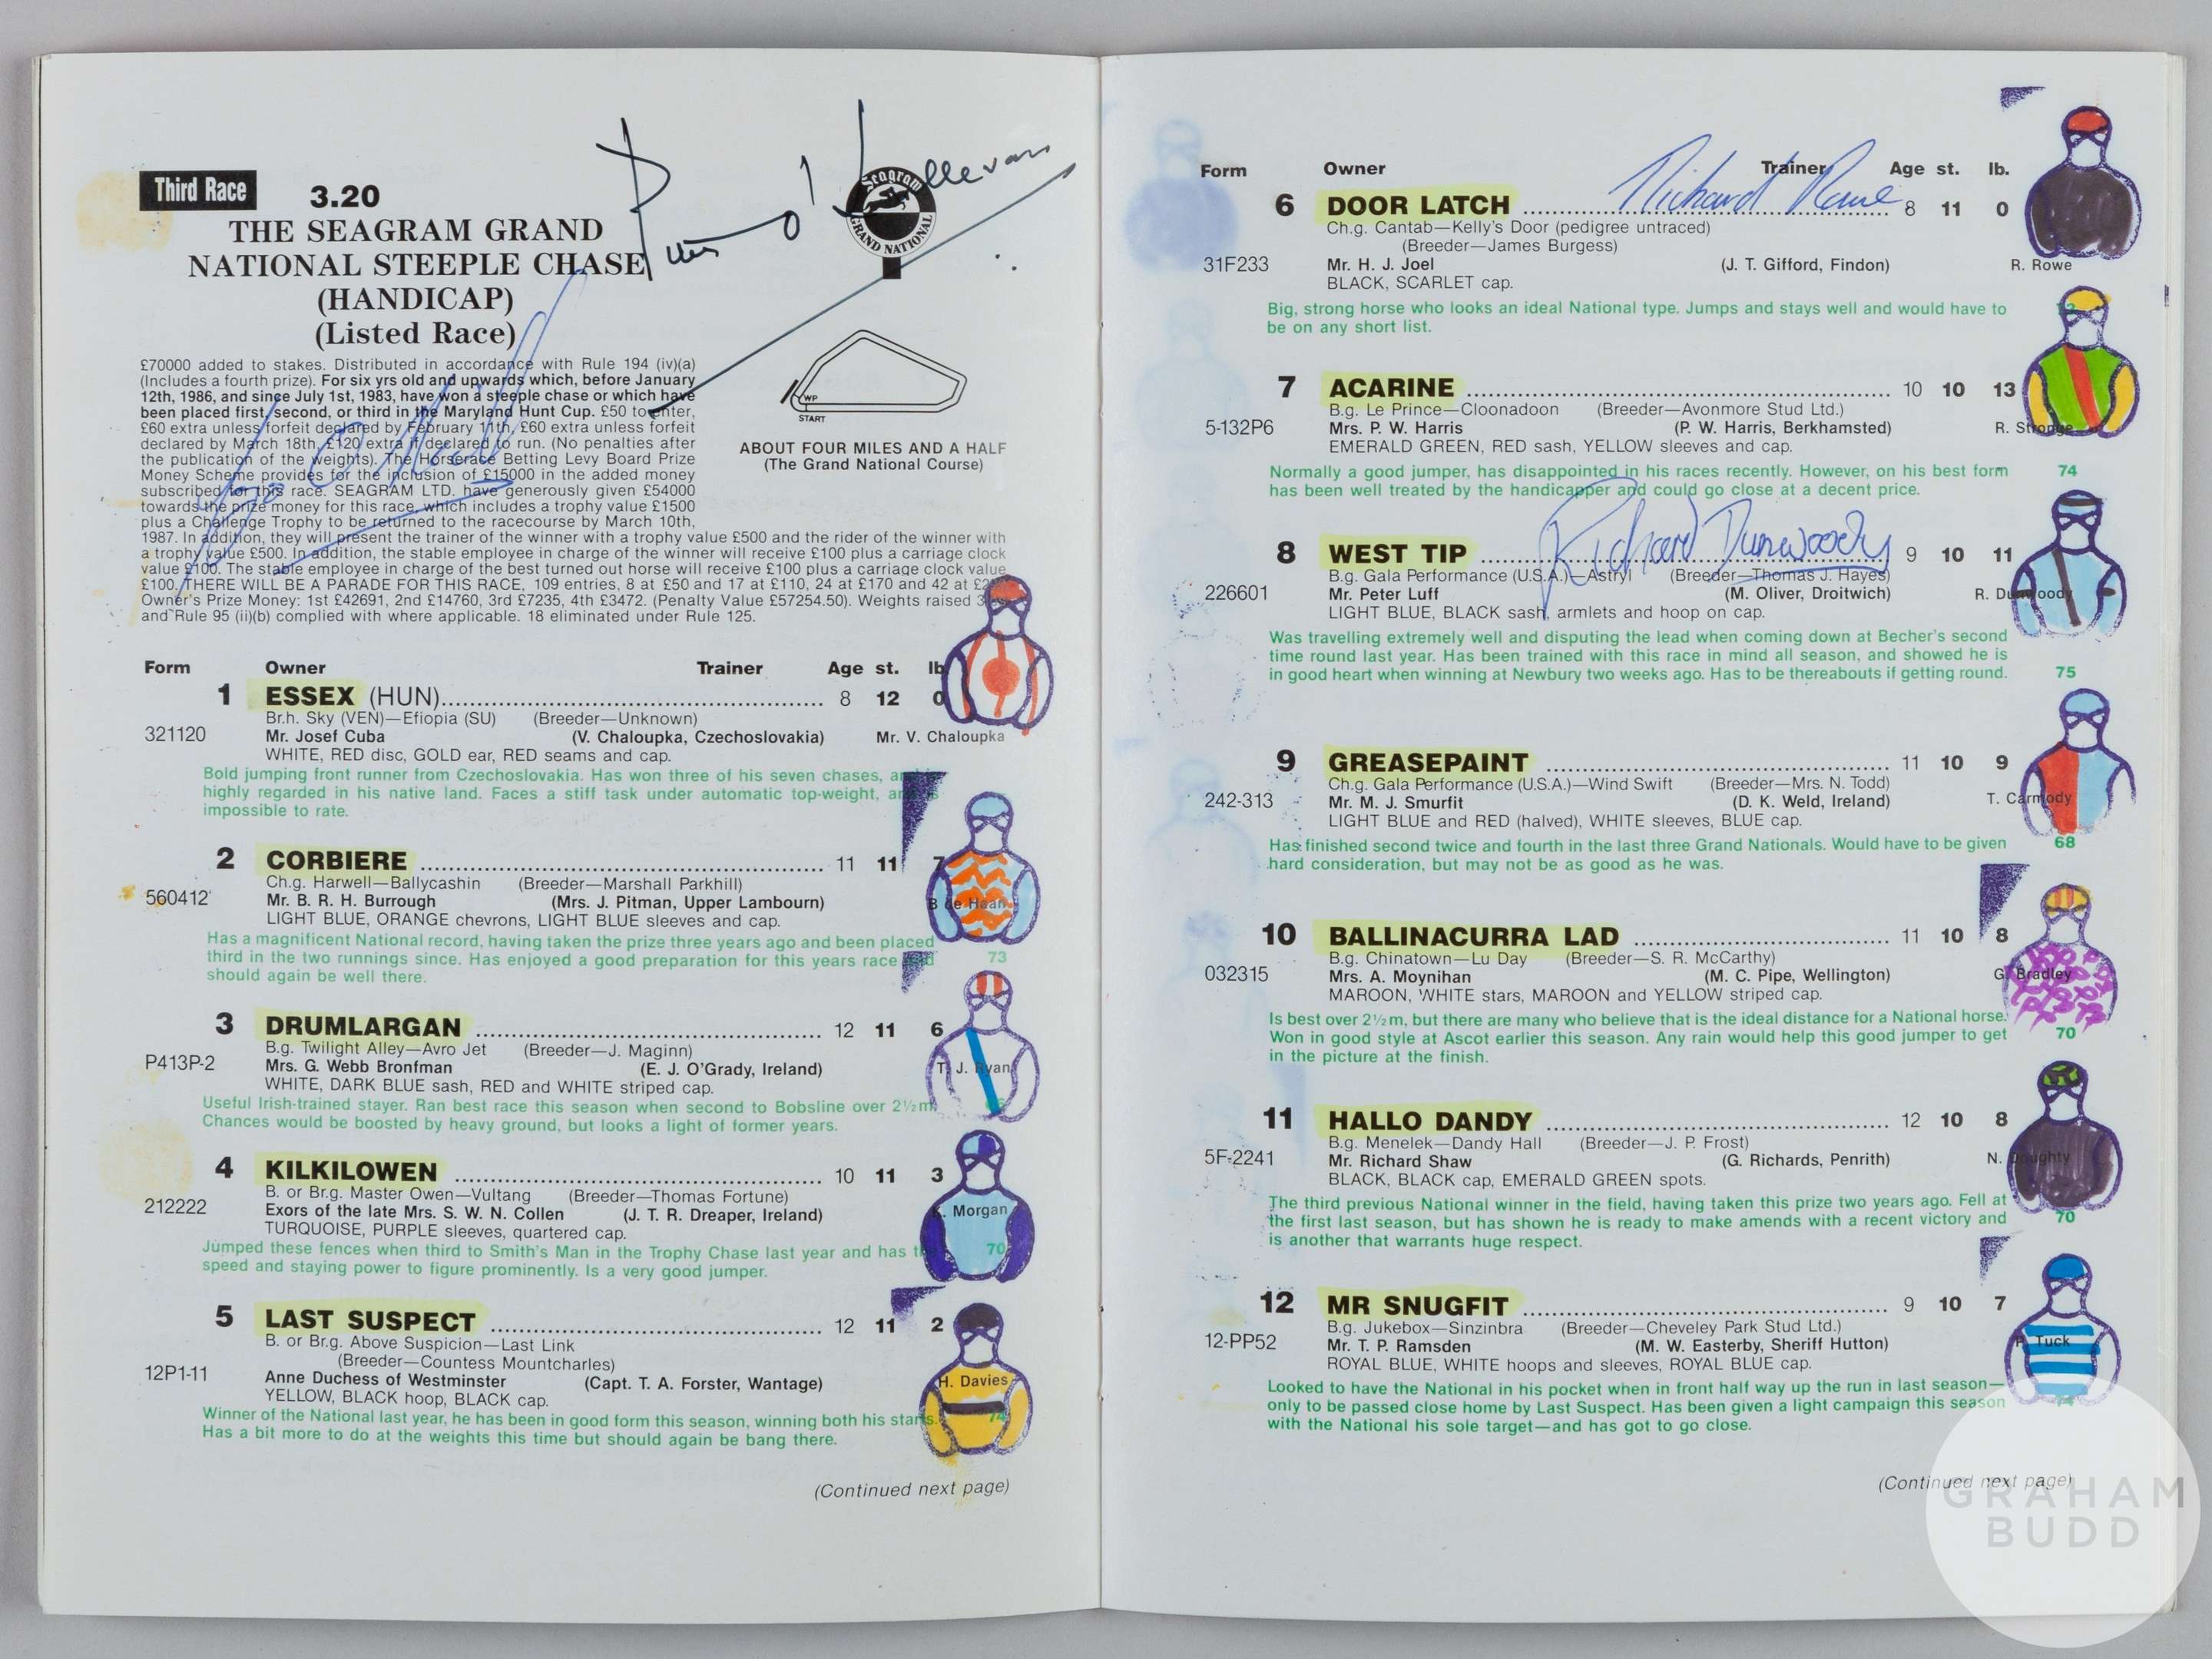 Third Race 3.20
THE SEAGRAM GRAND
NATIONAL STEEPLE CHASE
(HANDICAP)
(Listed Race)
Peter O'Sullevan
Seagram
GRAND NATIONAL
£70000 added to stakes. Distributed in accordance with Rule 194 (iv)(a)
(Includes a fourth prize). For six yrs old and upwards which, before January
12th, 1986, and since July 1st, 1983, have won a steeple chase or which have
been placed first, second, or third in the Maryland Hunt Cup. £50 to enter,
£60 extra unless forfeit declared by February 11th, £60 extra unless forfeit
declared by March 18th, £120 extra if declared to run. (No penalties after
the publication of the weights). The Horserace Betting Levy Board Prize
Money Scheme provides for the inclusion of £15000 in the added money
subscribed for this race. SEAGRAM LTD. have generously given £54000
towards the prize money for this race, which includes a trophy value £1500
plus a Challenge Trophy to be returned to the racecourse by March 10th,
1987. In addition, they will present the trainer of the winner with a trophy value £500 and the rider of the winner with
a trophy value £500. In addition, the stable employee in charge of the winner will receive £100 plus a carriage clock
value £100. The stable employee in charge of the best turned out horse will receive £100 plus a carriage clock value
£100. THERE WILL BE A PARADE FOR THIS RACE, 109 entries, 8 at £50 and 17 at £110, 24 at £170 and 42 at
Owner's Prize Money: 1st £42691, 2nd £14760, 3rd £7235, 4th £3472. (Penalty Value £57254.50). Weights raised
and Rule 95 (ii)(b) complied with where applicable. 18 eliminated under Rule 125.
WP
START
ABOUT FOUR MILES AND A HALF
(The Grand National Course)
Form Owner Trainer Age st. lb
1 ESSEX (HUN) 8 12 0
Br.h. Sky (VEN)—Efiopia (SU) (Breeder—Unknown)
321120 Mr. Josef Cuba (V. Chaloupka, Czechoslovakia) Mr. V. Chaloupka
WHITE, RED disc, GOLD ear, RED seams and cap.
Bold jumping front runner from Czechoslovakia. Has won three of his seven chases,
highly regarded in his native land. Faces a stiff task under automatic top-weight,
impossible to rate.
2 CORBIERE 11 11 7
Ch.g. Harwell—Ballycashin (Breeder—Marshall Parkhill)
560412 Mr. B. R. H. Burrough (Mrs. J. Pitman, Upper Lambourn) B de Haan
LIGHT BLUE, ORANGE chevrons, LIGHT BLUE sleeves and cap.
Has a magnificent National record, having taken the prize three years ago and been placed
third in the two runnings since. Has enjoyed a good preparation for this years race 73
should again be well there.
3 DRUMLARGAN 12 11 6
B.g. Twilight Alley—Avro Jet (Breeder—J. Maginn)
P413P-2 Mrs. G. Webb Bronfman (E. J. O'Grady, Ireland) T. J. Ryan
WHITE, DARK BLUE sash, RED and WHITE striped cap.
Useful Irish-trained stayer. Ran best race this season when second to Bobsline over 2½m.
Chances would be boosted by heavy ground, but looks a light of former years.
4 KILKILOWEN 10 11 3
B. or Br.g. Master Owen—Vultang (Breeder—Thomas Fortune)
212222 Exors of the late Mrs. S. W. N. Collen (J. T. R. Dreaper, Ireland) Morgan
TURQUOISE, PURPLE sleeves, quartered cap.
Jumped these fences when third to Smith's Man in the Trophy Chase last year and has 70
speed and staying power to figure prominently. Is a very good jumper.
5 LAST SUSPECT 12 11 2
B. or Br.g. Above Suspicion—Last Link
(Breeder—Countess Mountcharles)
12P1-11 Anne Duchess of Westminster (Capt. T. A. Forster, Wantage) H. Davies
YELLOW, BLACK hoop, BLACK cap.
Winner of the National last year, he has been in good form this season, winning both his starts. 74
Has a bit more to do at the weights this time but should again be bang there.
(Continued next page)
Form Owner Trainer Age st. lb.
Richard Rowe
6 DOOR LATCH 8 11 0
Ch.g. Cantab—Kelly's Door (pedigree untraced)
(Breeder—James Burgess)
31F233 Mr. H. J. Joel (J. T. Gifford, Findon) R. Rowe
BLACK, SCARLET cap.
Big, strong horse who looks an ideal National type. Jumps and stays well and would have to
be on any short list.
7 ACARINE 10 10 13
B.g. Le Prince—Cloonadoon (Breeder—Avonmore Stud Ltd.)
5-132P6 Mrs. P. W. Harris (P. W. Harris, Berkhamsted) R. Stronge
EMERALD GREEN, RED sash, YELLOW sleeves and cap.
Normally a good jumper, has disappointed in his races recently. However, on his best form 74
has been well treated by the handicapper and could go close at a decent price.
Richard Dunwoody
8 WEST TIP 9 10 11
B.g. Gala Performance (U.S.A.)—Astryl (Breeder—Thomas J. Hayes)
226601 Mr. Peter Luff (M. Oliver, Droitwich) R. Dunwoody
LIGHT BLUE, BLACK sash, armlets and hoop on cap.
Was travelling extremely well and disputing the lead when coming down at Becher's second
time round last year. Has been trained with this race in mind all season, and showed he is
in good heart when winning at Newbury two weeks ago. Has to be thereabouts if getting round. 75
9 GREASEPAINT 11 10 9
Ch.g. Gala Performance (U.S.A.)—Wind Swift (Breeder—Mrs. N. Todd)
242-313 Mr. M. J. Smurfit (D. K. Weld, Ireland) T. Carmody
LIGHT BLUE and RED (halved), WHITE sleeves, BLUE cap.
Has finished second twice and fourth in the last three Grand Nationals. Would have to be given 68
hard consideration, but may not be as good as he was.
10 BALLINACURRA LAD 11 10 8
B.g. Chinatown—Lu Day (Breeder—S. R. McCarthy)
032315 Mrs. A. Moynihan (M. C. Pipe, Wellington) G. Bradley
MAROON, WHITE stars, MAROON and YELLOW striped cap.
Is best over 2½m, but there are many who believe that is the ideal distance for a National horse.
Won in good style at Ascot earlier this season. Any rain would help this good jumper to get 70
in the picture at the finish.
11 HALLO DANDY 12 10 8
B.g. Menelek—Dandy Hall (Breeder—J. P. Frost)
5F-2241 Mr. Richard Shaw (G. Richards, Penrith) N. Doughty
BLACK, BLACK cap, EMERALD GREEN spots.
The third previous National winner in the field, having taken this prize two years ago. Fell at
the first last season, but has shown he is ready to make amends with a recent victory and 70
is another that warrants huge respect.
12 MR SNUGFIT 9 10 7
B.g. Jukebox—Sinzinbra (Breeder—Cheveley Park Stud Ltd.)
12-PP52 Mr. T. P. Ramsden (M. W. Easterby, Sheriff Hutton) Tuck
ROYAL BLUE, WHITE hoops and sleeves, ROYAL BLUE cap.
Looked to have the National in his pocket when in front half way up the run in last season—
only to be passed close home by Last Suspect. Has been given a light campaign this season
with the National his sole target—and has got to go close.
(Continued next page)
GRAHAM
BUDD